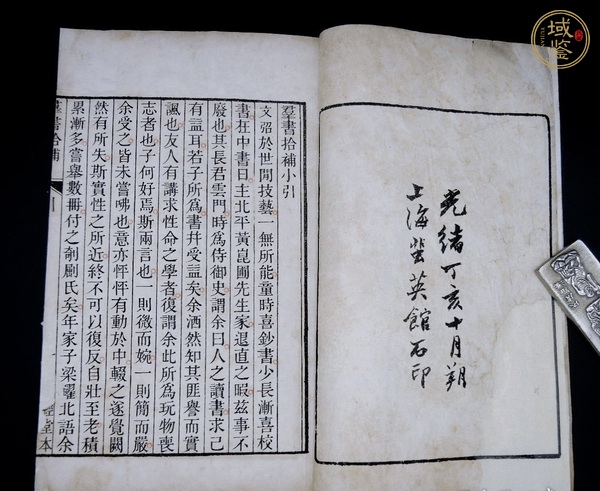 域鑒
光緒丁亥十月朔
上海蜚英館石印
羣書拾補小引
文弨於世閒技藝一無所能童時喜鈔書少長漸喜校
書在中書日主北平黃崑圃先生家退直之暇茲事不
廢也其長君雲門時爲侍御史謂余曰人之讀書求己
有益耳若子所爲書并受益矣余洒然知其匪譽而實
諷也友人有講求性命之學者復謂余此所爲玩物喪
志者也子何好焉斯兩言也一則微而婉一則簡而嚴
余受之皆未嘗咈也意亦怦怦有動於中輟之遂覺闕
然有所失斯實性之所近終不可以復反自壯至老積
累漸多嘗舉數冊付之剞劂氏矣年家子梁曜北語余
羣書拾補 一 堂本